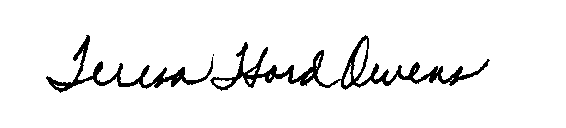 Teresa Hord Owens